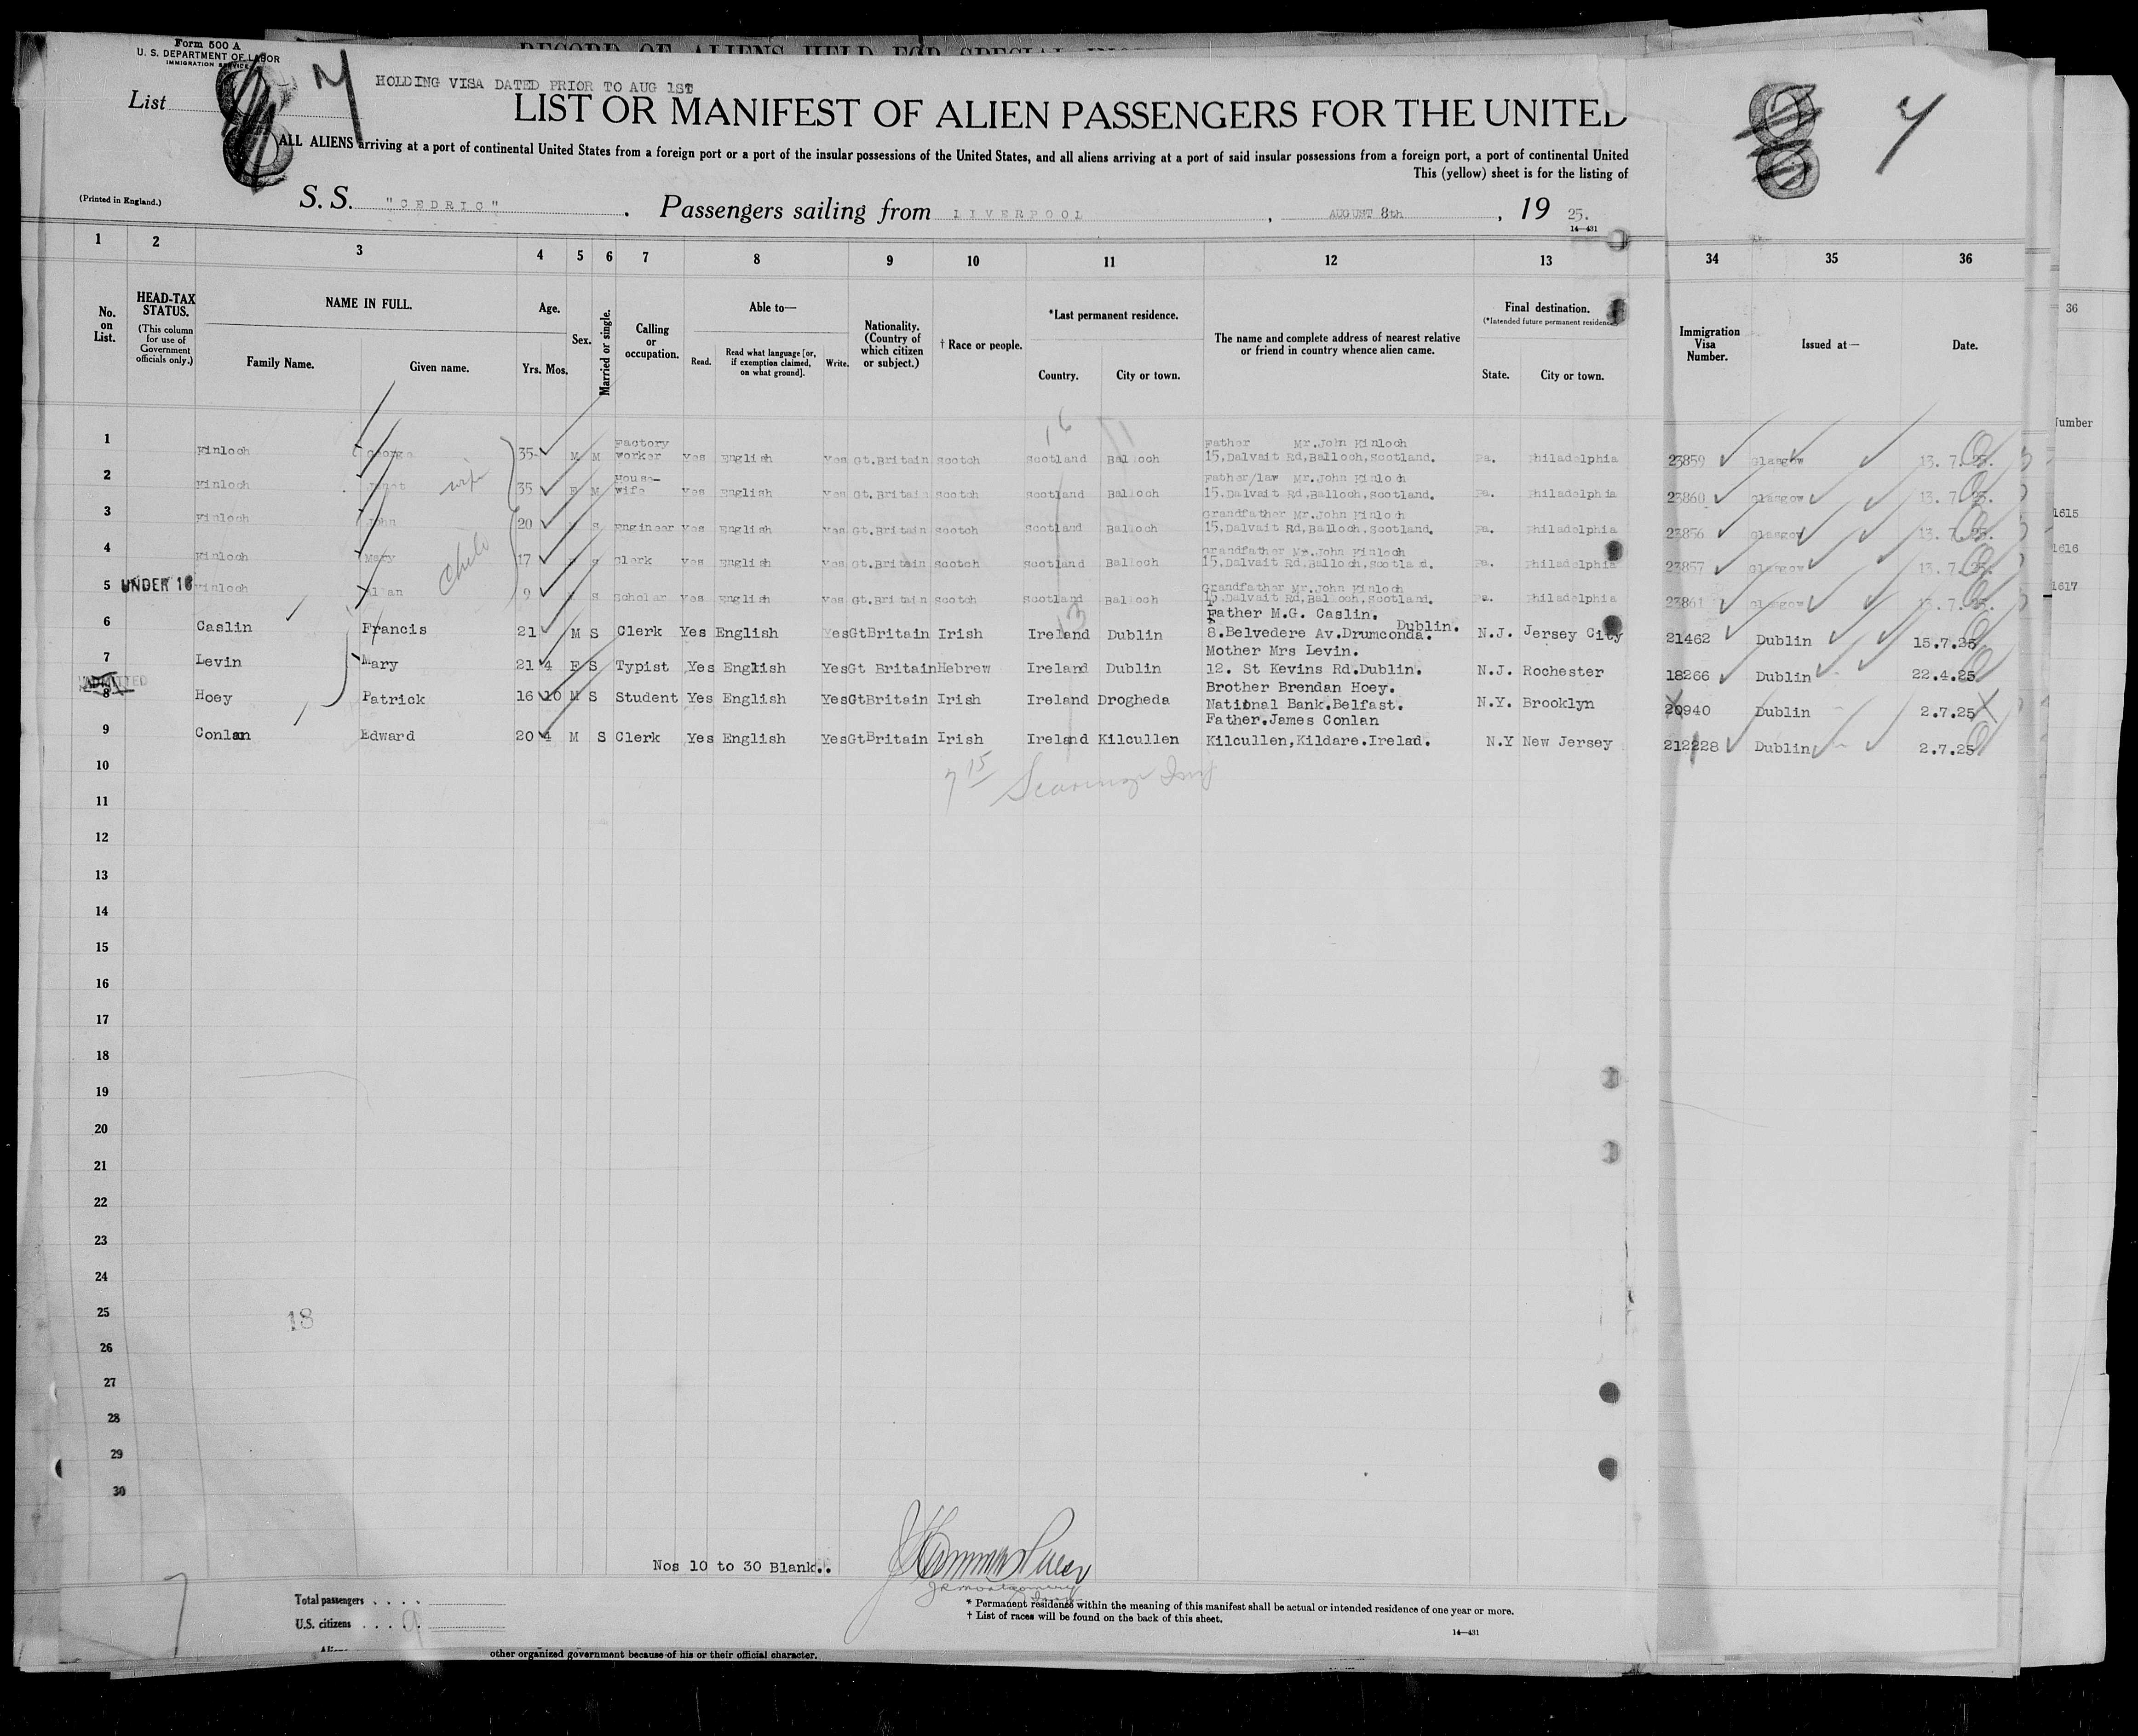 RECORD OF ALIENS HELD FOR SPECIAL
Form 500 A
U. S. DEPARTMENT OF LABOR
IMMIGRATION SERVICE
List
7
HOLDING VISA DATED PRIOR TO AUG 1ST
LIST OR MANIFEST OF ALIEN PASSENGERS FOR THE UNITED
ALL ALIENS arriving at a port of continental United States from a foreign port or a port of the insular possessions of the United States, and all aliens arriving at a port of said insular possessions from a foreign port, a port of continental United
This (yellow) sheet is for the listing of
(Printed in England.)
S. S. "CEDRIC". Passengers sailing from LIVERPOOL, AUGUST 8th, 19 25.
14—431
1 2 3 4 5 6 7 8 9 10 11 12 13 34 35 36
No. on List.
HEAD-TAX STATUS.
(This column for use of Government officials only.)
NAME IN FULL.
Family Name. Given name.
Age.
Yrs. Mos.
Sex.
Married or single.
Calling or occupation.
Able to—
Read. Read what language [or, if exemption claimed, on what ground]. Write.
Nationality. (Country of which citizen or subject.)
† Race or people.
*Last permanent residence.
Country. City or town.
The name and complete address of nearest relative or friend in country whence alien came.
Final destination.
(*Intended future permanent residence)
State. City or town.
Immigration Visa Number.
Issued at—
Date.
36
Number
16
Factory Father Mr.John Kinloch
1 Kinloch George 35 M M worker Yes English Yes Gt.Britain Scotch Scotland Balloch 15,Dalvait Rd,Balloch,Scotland. Pa. Philadelphia 23859 Glasgow 13. 7. 25.
wife
House- Father/law Mr.John Kinloch
2 Kinloch Janet 35 F M wife Yes English Yes Gt.Britain Scotch Scotland Balloch 15,Dalvait Rd,Balloch,Scotland. Pa. Philadelphia 23860 Glasgow 13. 7. 25.
Grandfather Mr.John Kinloch
3 Kinloch John 20 S Engineer Yes English Yes Gt.Britain Scotch Scotland Balloch 15,Dalvait Rd,Balloch,Scotland. Pa. Philadelphia 23856 Glasgow 13. 7. 25.
1615
Grandfather Mr.John Kinloch
4 Kinloch Mary 17 S Clerk Yes English Yes Gt.Britain Scotch Scotland Balloch 15,Dalvait Rd,Balloch,Scotland. Pa. Philadelphia 23857 Glasgow 13. 7. 25.
1616
Grandfather Mr.John Kinloch
5 UNDER 16 Kinloch Allan 9 S Scholar Yes English Yes Gt.Britain Scotch Scotland Balloch 15,Dalvait Rd,Balloch,Scotland. Pa. Philadelphia 23861 Glasgow 13. 7. 25.
1617
Father M.G. Caslin.
Dublin.
6 Caslin Francis 21 M S Clerk Yes English Yes GtBritain Irish Ireland Dublin 8.Belvedere Av.Drumconda. N.J. Jersey City 21462 Dublin 15.7.25
Mother Mrs Levin.
7 Levin Mary 21 4 F S Typist Yes English Yes Gt Britain Hebrew Ireland Dublin 12. St Kevins Rd.Dublin. N.J. Rochester 18266 Dublin 22.4.25
ADMITTED
Brother Brendan Hoey.
8 Hoey Patrick 16 10 M S Student Yes English Yes GtBritain Irish Ireland Drogheda National Bank.Belfast. N.Y. Brooklyn 20940 Dublin 2.7.25
Father.James Conlan
9 Conlan Edward 20 4 M S Clerk Yes English Yes GtBritain Irish Ireland Kilcullen Kilcullen,Kildare.Irelad. N.Y New Jersey 212228 Dublin 2.7.25
10
11
12
13
14
15
16
17
18
19
20
21
22
23
24
25
18
26
27
28
29
30
Nos 10 to 30 Blank..
7
Total passengers . . . .
U.S. citizens . . . .
9
* Permanent residence within the meaning of this manifest shall be actual or intended residence of one year or more.
† List of races will be found on the back of this sheet.
14—431
other organized government because of his or their official character.